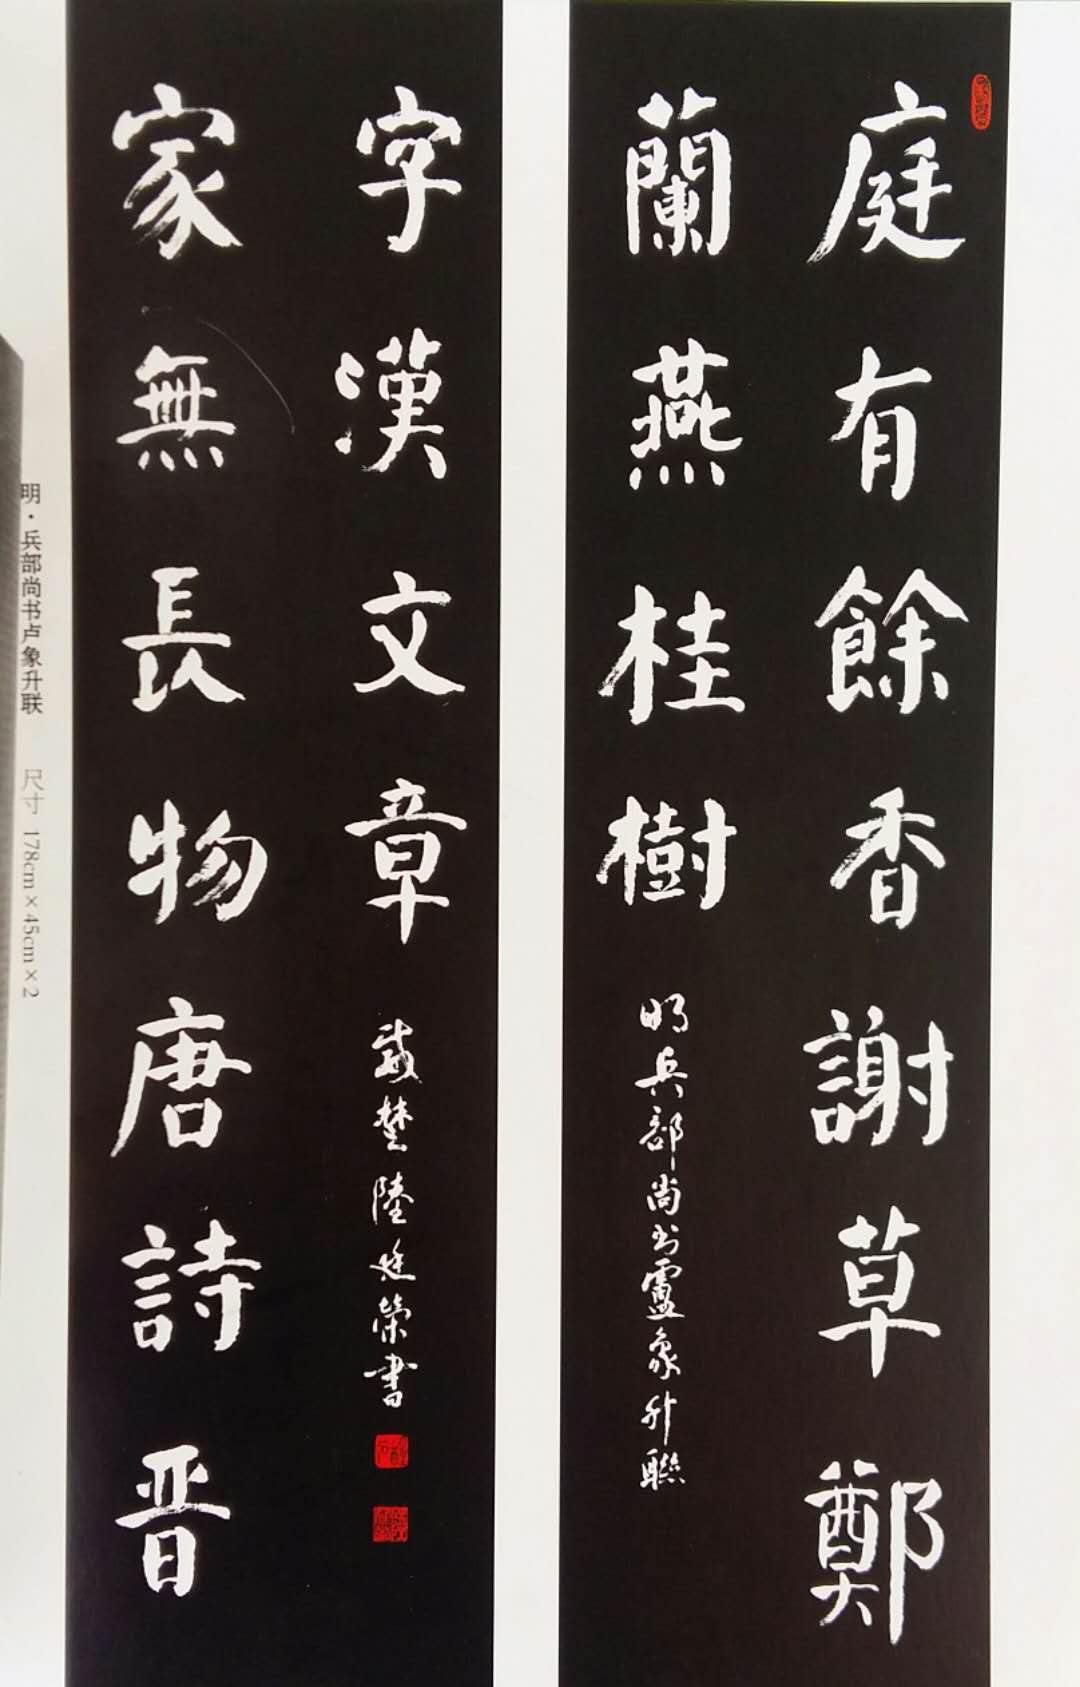 庭有餘香謝草鄭
蘭燕桂樹
明兵部尚书盧象升聯
家無長物唐詩晉
字漢文章
楚陸廷榮書
明·兵部尚书卢象升联 尺寸 178cm×45cm×2